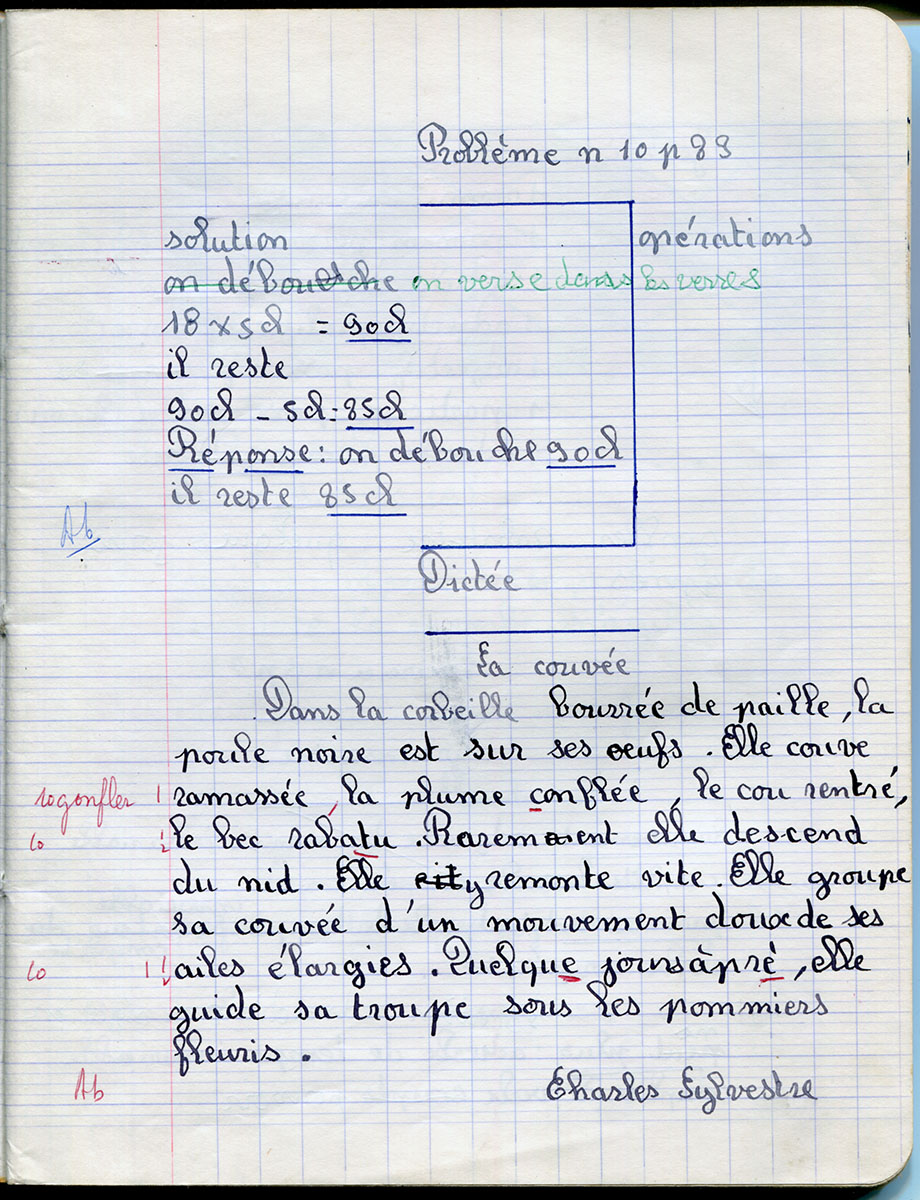 Problème n 10 p 83
solution opérations
on débouche on verse dans les verres
18 x 5cl = 90cl
il reste
90cl - 5cl = 85cl
Réponse : on débouche 90cl
il reste 85cl
Ab
Dictée
La couvée
Dans la corbeille bourrée de paille, la
poule noire est sur ses oeufs. Elle couve
ramassée, la plume conflée, le cou rentré,
le bec rabatu. Rarement elle descend
du nid. Elle y remonte vite. Elle groupe
sa couvée d'un mouvement doux de ses
lo !! ailes élargies. Quelque jours àpré, elle
guide sa troupe sous les pommiers
fleuris.
Ab Charles Sylvestre